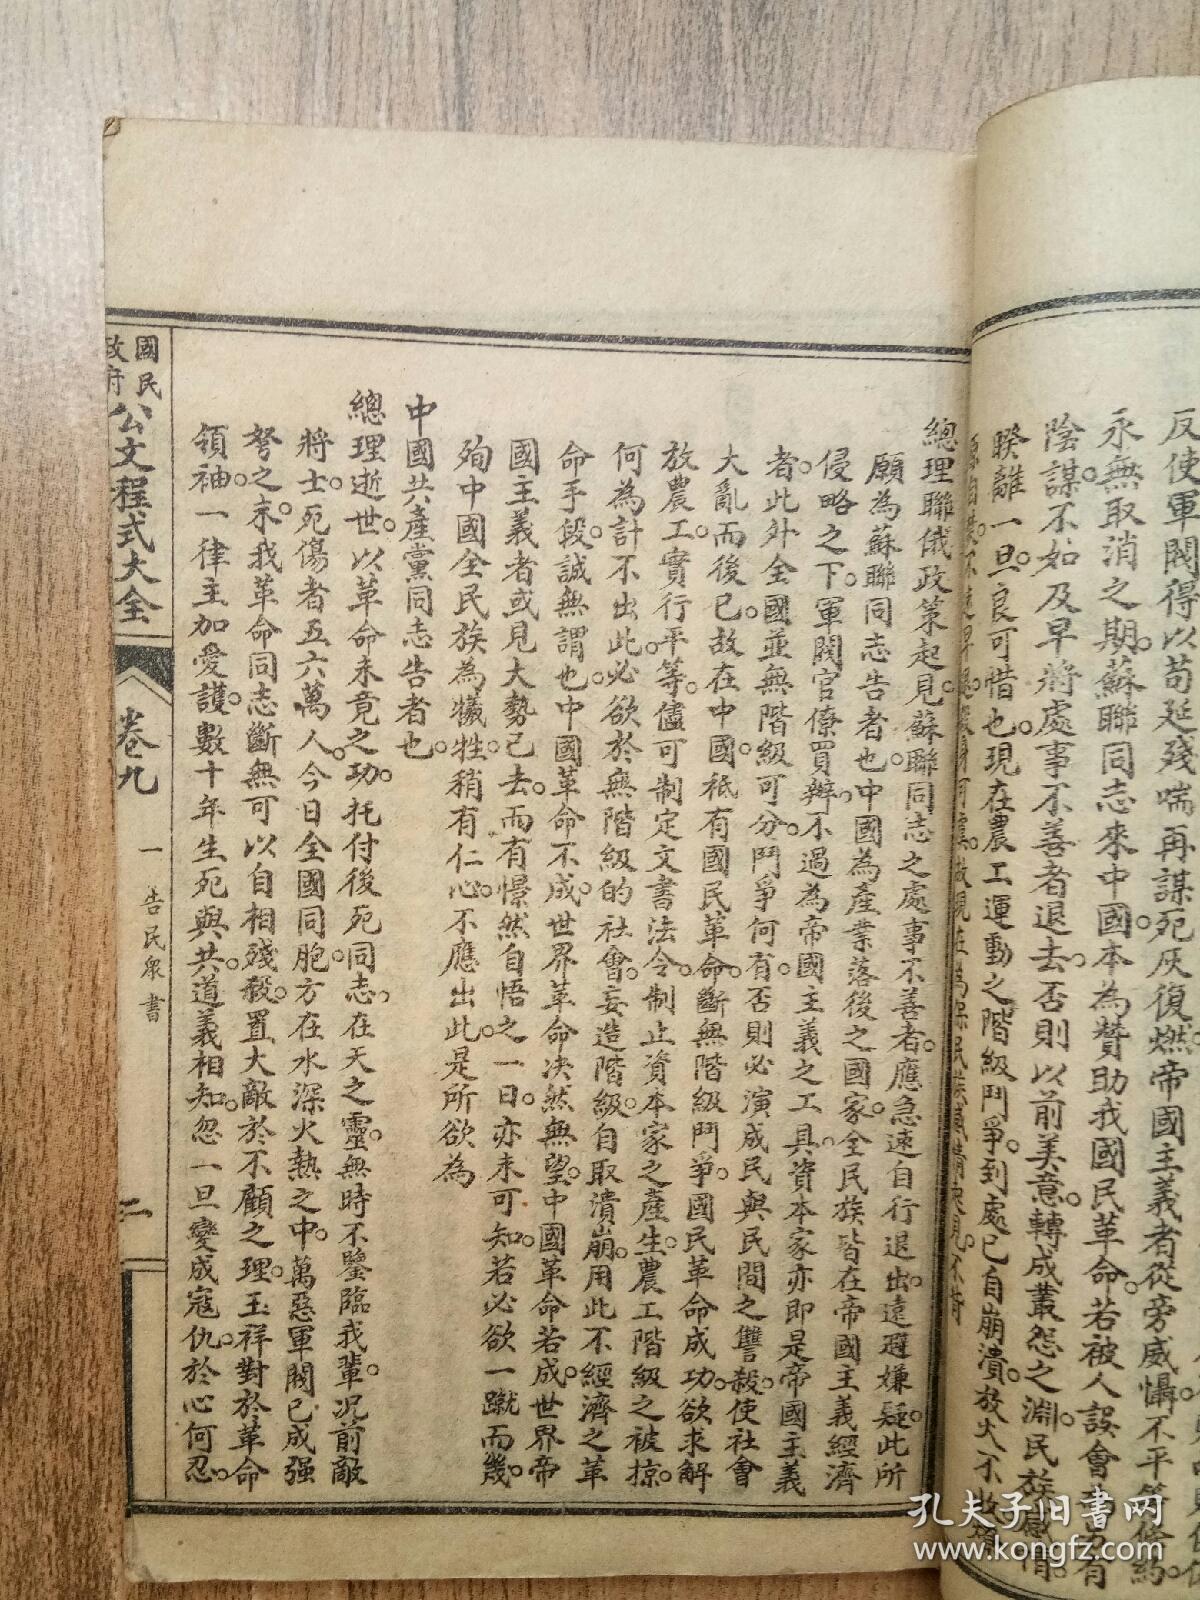 反使軍閥得以苟延殘喘再謀死灰復燃帝國主義者從旁威懾不平等條約
永無取消之期。蘇聯同志來中國。本為贊助我國民革命。若被人誤會
陰謀。不如及早將處事不善者退去。否則以前美意。轉成叢怨之淵。民族感情。
暌離一旦。良可惜也。現在農工運動之階級鬥爭。到處已自崩潰。放火不收
總理聯俄政策起見。蘇聯同志之處事不善者。應急速自行退出。遠避嫌疑。此所
願為蘇聯同志告者也。中國為產業落後之國家。全民族皆在帝國主義經濟
侵略之下。軍閥官僚買辦。不過為帝國主義之工具。資本家亦即是帝國主義
者。此外全國並無階級可分。鬥爭何有。否則必演成民與民間之讐殺。使社會
大亂而後已。故在中國。祗有國民革命。斷無階級鬥爭。國民革命成功。欲求解
放農工。實行平等。儘可制定文書法令。制止資本家之產生。農工階級之被掠。
何為計不出此。必欲於無階級的社會。妄造階級。自取潰崩。用此不經濟之革
命手段。誠無謂也。中國革命不成。世界革命決然無望。中國革命若成。世界帝
國主義者或見大勢已去。而有憬然自悟之一日。亦未可知。若必欲一蹴而幾。
殉中國全民族為犧牲。稍有仁心。不應出此。是所欲為
中國共產黨同志告者也。
總理逝世。以革命未竟之功。托付後死同志。在天之靈。無時不鑒臨我輩。况前敵
將士。死傷者五六萬人。今日全國同胞。方在水深火熱之中。萬惡軍閥。已成强
弩之末。我革命同志。斷無可以自相殘殺。置大敵於不顧之理。玉祥對於革命
領袖。一律主加愛護。數十年生死與共。道義相知。忽一旦變成寇仇。於心何忍。
國民政府公文程式大全
卷九
一 告民衆書
二
孔夫子旧书网
www.kongfz.com